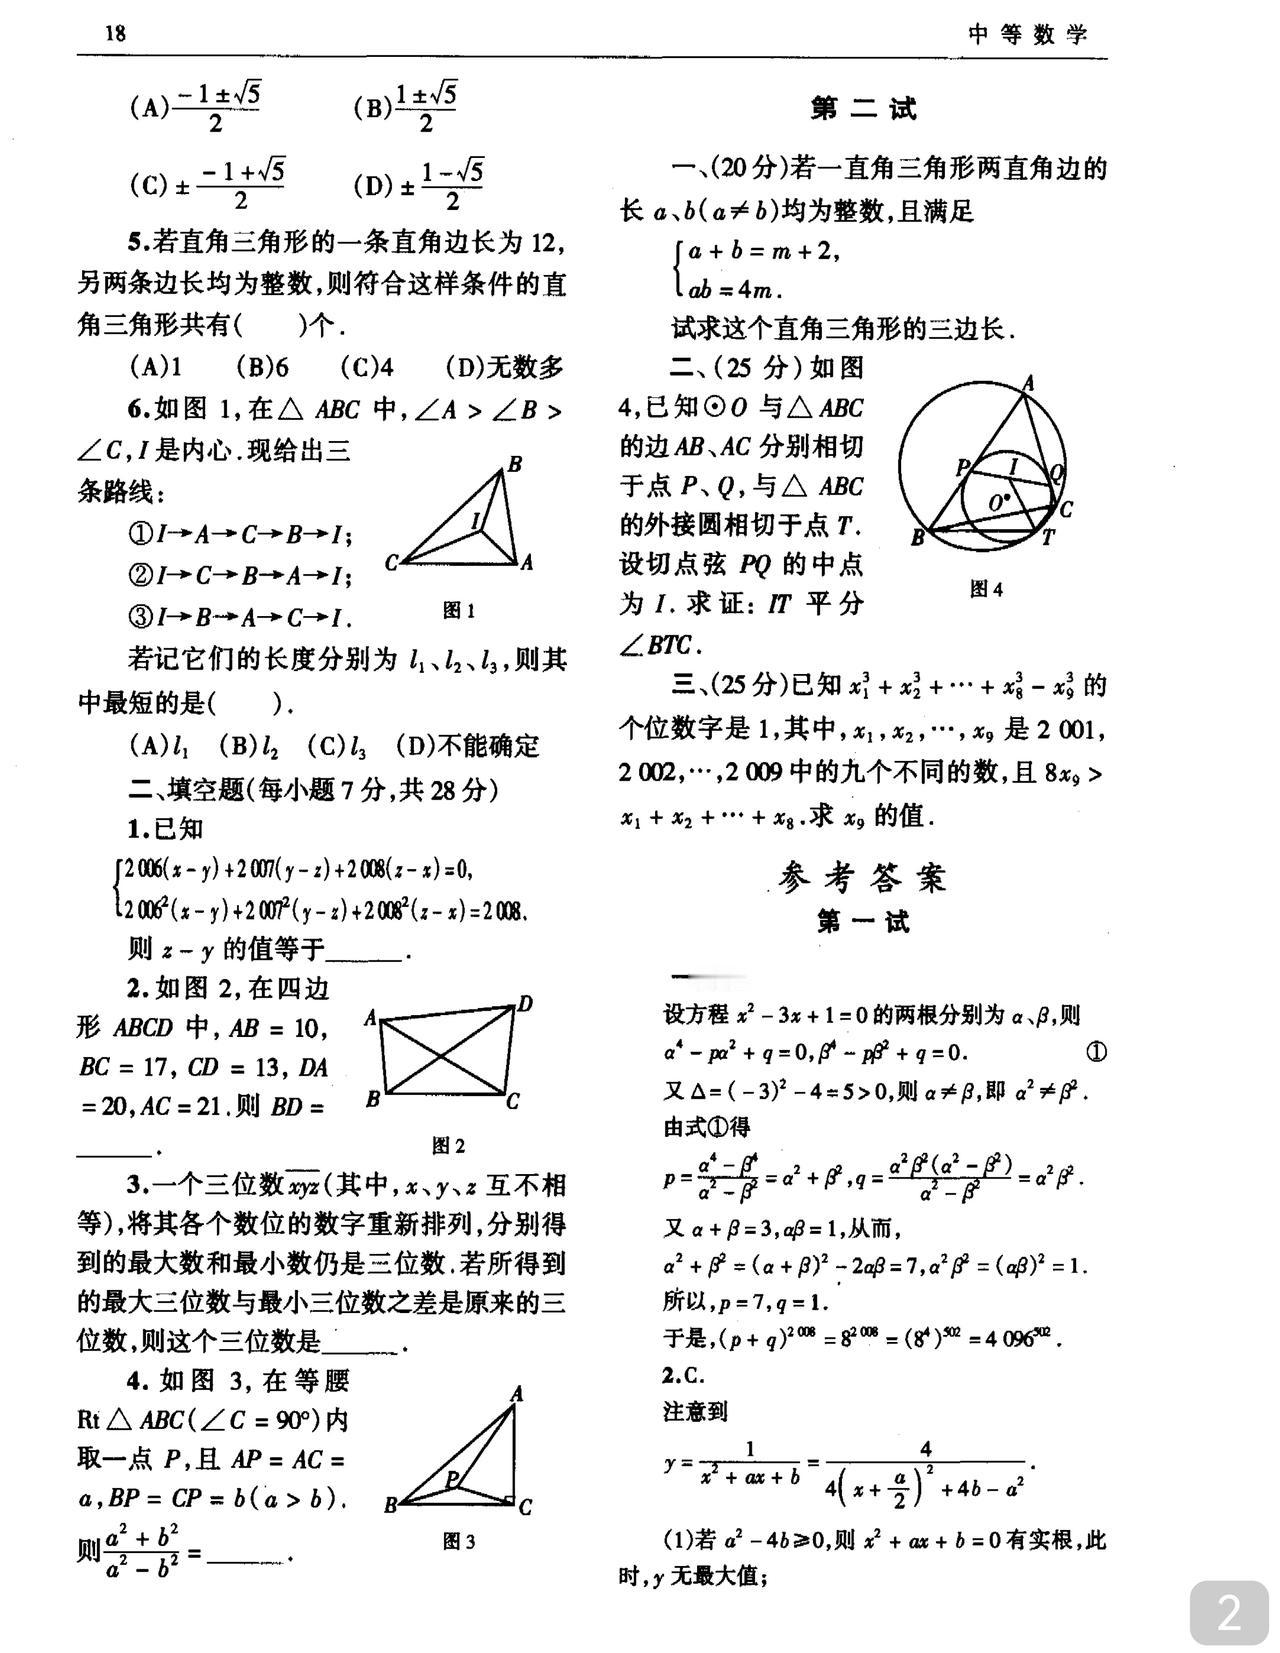 18
中等数学
(A) \frac{-1±√5}{2} (B) \frac{1±√5}{2}
(C) ± \frac{-1+√5}{2} (D) ± \frac{1-√5}{2}
5.若直角三角形的一条直角边长为12,
另两条边长均为整数,则符合这样条件的直
角三角形共有( )个.
(A)1 (B)6 (C)4 (D)无数多
6.如图1,在△ABC中,∠A>∠B>
∠C,I是内心.现给出三
条路线:
①I→A→C→B→I;
②I→C→B→A→I;
③I→B→A→C→I.
B
I
C
A
图1
若记它们的长度分别为l₁、l₂、l₃,则其
中最短的是( ).
(A)l₁ (B)l₂ (C)l₃ (D)不能确定
二、填空题(每小题7分,共28分)
1.已知
{2 006(x-y)+2 007(y-z)+2 008(z-x)=0,
2 006²(x-y)+2 007²(y-z)+2 008²(z-x)=2 008.
则z-y的值等于____.
2.如图2,在四边
形ABCD中,AB=10,
BC=17,CD=13,DA
=20,AC=21.则BD=
____.
A
D
B
C
图2
3.一个三位数\overline{xyz}(其中,x、y、z互不相
等),将其各个数位的数字重新排列,分别得
到的最大数和最小数仍是三位数.若所得到
的最大三位数与最小三位数之差是原来的三
位数,则这个三位数是____.
4.如图3,在等腰
Rt△ABC(∠C=90°)内
取一点P,且AP=AC=
a,BP=CP=b(a>b).
则\frac{a²+b²}{a²-b²}=____.
A
P
B
C
图3
第二试
一、(20分)若一直角三角形两直角边的
长a、b(a≠b)均为整数,且满足
{a+b=m+2,
ab=4m.
试求这个直角三角形的三边长.
二、(25分)如图
4,已知⊙O与△ABC
的边AB、AC分别相切
于点P、Q,与△ABC
的外接圆相切于点T.
设切点弦PQ的中点
为I.求证:IT平分
∠BTC.
A
P
I
Q
O
C
B
T
图4
三、(25分)已知x₁³+x₂³+⋯+x₈³-x₉³的
个位数字是1,其中,x₁,x₂,⋯,x₉是2 001,
2 002,⋯,2 009中的九个不同的数,且8x₉>
x₁+x₂+⋯+x₈.求x₉的值.
参考答案
第一试
设方程x²-3x+1=0的两根分别为α、β,则
α⁴-pα²+q=0,β⁴-pβ²+q=0. ①
又Δ=(-3)²-4=5>0,则α≠β,即α²≠β².
由式①得
p=\frac{α⁴-β⁴}{α²-β²}=α²+β²,q=\frac{α²β²(α²-β²)}{α²-β²}=α²β².
又α+β=3,αβ=1,从而,
α²+β²=(α+β)²-2αβ=7,α²β²=(αβ)²=1.
所以,p=7,q=1.
于是,(p+q)^{2 008}=8^{2 008}=(8⁴)^{502}=4 096^{502}.
2.C.
注意到
y=\frac{1}{x²+ax+b}=\frac{4}{4(x+\frac{a}{2})²+4b-a²}.
(1)若a²-4b≥0,则x²+ax+b=0有实根,此
时,y无最大值;
2